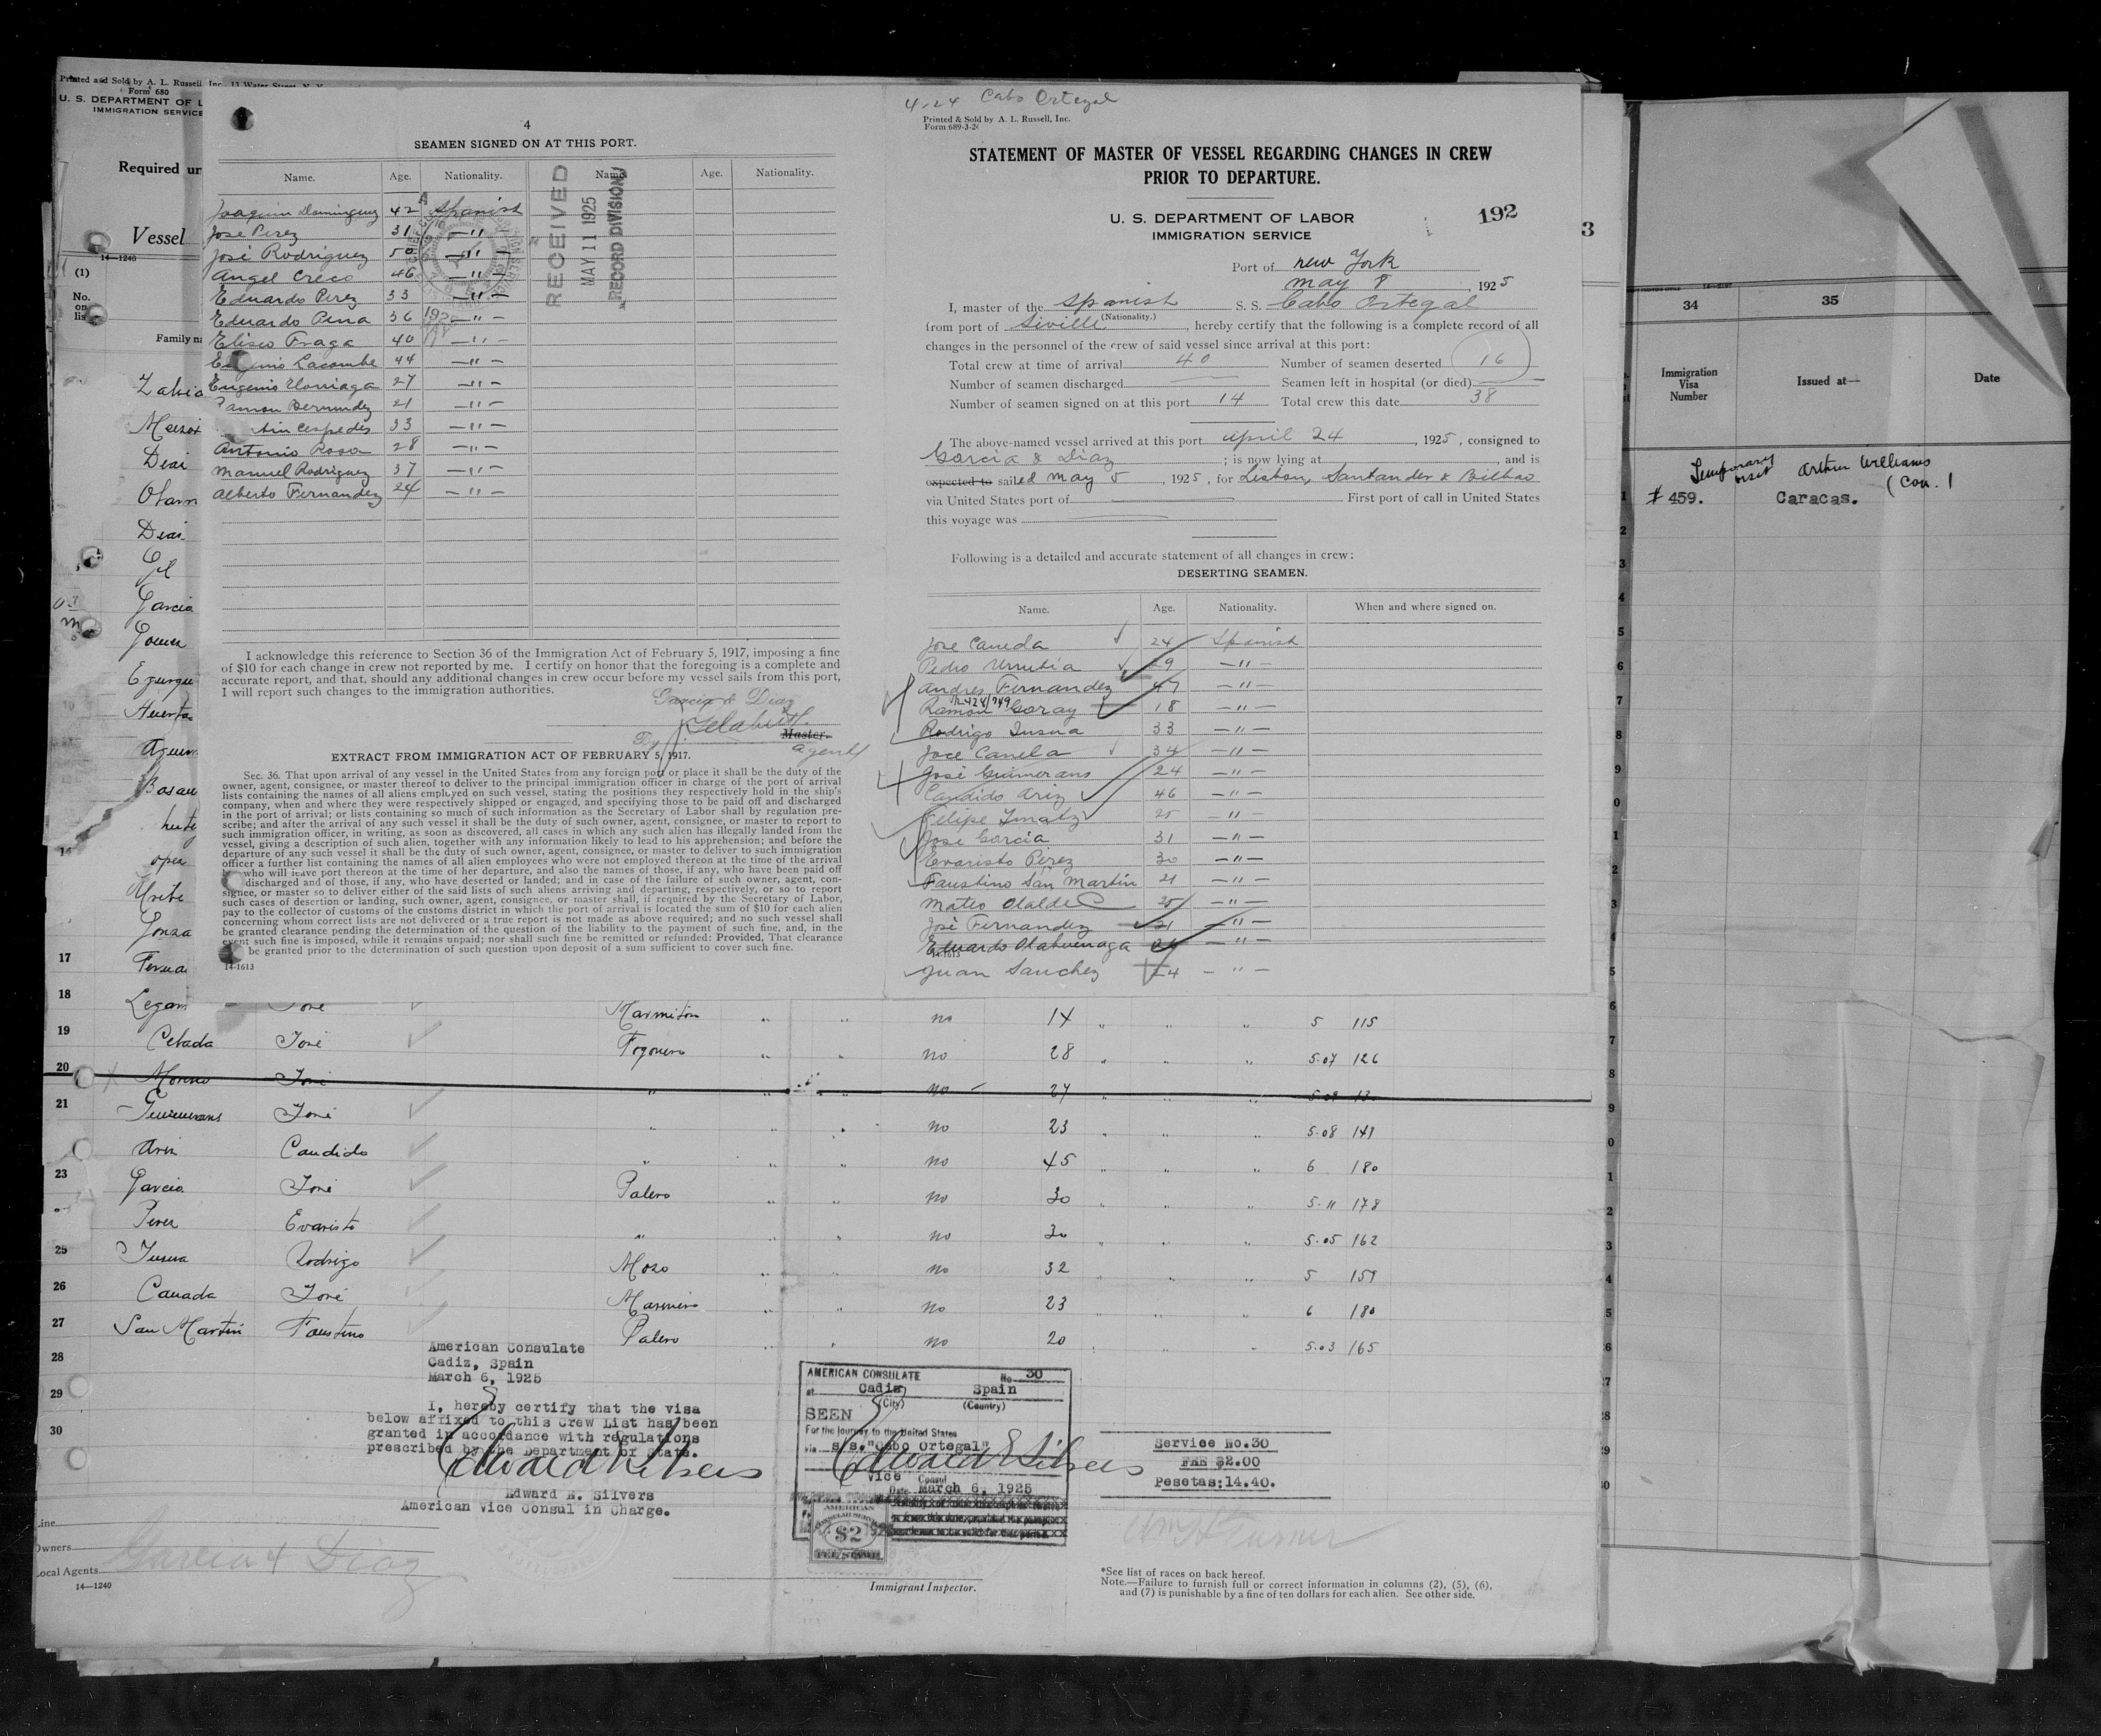 Printed and Sold by A. L. Russell, Inc., 11 Water Street, N. Y.
Form 680
U. S. DEPARTMENT OF L
IMMIGRATION SERVICE
Required un
Vessel
14—1240
(1)
No.
on
lis
Family na
4
SEAMEN SIGNED ON AT THIS PORT.
Name. Age. Nationality. Name. Age. Nationality.
Joaquin Dominguez 42 Spanish
Jose Perez 31 —"—
José Rodriguez 50 —"—
Angel Creco 46 —"—
Eduardo Perez 33 —"—
Eduardo Pena 36 —"—
Eliseo Fraga 40 —"—
Lacombe 44 —"—
Eugenio 27 —"—
Ramon Bermudez 21 —"—
Cespedes 33 —"—
Antonio Rosa 28 —"—
Manuel Rodriguez 37 —"—
Alberto Fernandez 24 —"—
RECEIVED
MAY 11 1925
RECORD DIVISION
I acknowledge this reference to Section 36 of the Immigration Act of February 5, 1917, imposing a fine
of $10 for each change in crew not reported by me. I certify on honor that the foregoing is a complete and
accurate report, and that, should any additional changes in crew occur before my vessel sails from this port,
I will report such changes to the immigration authorities.
Garcia & Diaz
By
Master.
Agents
EXTRACT FROM IMMIGRATION ACT OF FEBRUARY 5, 1917.
Sec. 36. That upon arrival of any vessel in the United States from any foreign port or place it shall be the duty of the
owner, agent, consignee, or master thereof to deliver to the principal immigration officer in charge of the port of arrival
lists containing the names of all aliens employed on such vessel, stating the positions they respectively hold in the ship's
company, when and where they were respectively shipped or engaged, and specifying those to be paid off and discharged
in the port of arrival; or lists containing so much of such information as the Secretary of Labor shall by regulation pre-
scribe; and after the arrival of any such vessel it shall be the duty of such owner, agent, consignee, or master to report to
such immigration officer, in writing, as soon as discovered, all cases in which any such alien has illegally landed from the
vessel, giving a description of such alien, together with any information likely to lead to his apprehension; and before the
departure of any such vessel it shall be the duty of such owner, agent, consignee, or master to deliver to such immigration
officer a further list containing the names of all alien employees who were not employed thereon at the time of the arrival
who will leave port thereon at the time of her departure, and also the names of those, if any, who have been paid off
discharged and of those, if any, who have deserted or landed; and in case of the failure of such owner, agent, con-
signee, or master so to deliver either of the said lists of such aliens arriving and departing, respectively, or so to report
such cases of desertion or landing, such owner, agent, consignee, or master shall, if required by the Secretary of Labor,
pay to the collector of customs of the customs district in which the port of arrival is located the sum of $10 for each alien
concerning whom correct lists are not delivered or a true report is not made as above required; and no such vessel shall
be granted clearance pending the determination of the question of the liability to the payment of such fine, and, in the
event such fine is imposed, while it remains unpaid; nor shall such fine be remitted or refunded: Provided, That clearance
be granted prior to the determination of such question upon deposit of a sum sufficient to cover such fine.
14-1613
4-24 Cabo Ortegal
Printed & Sold by A. L. Russell, Inc.
Form 689-3-2
STATEMENT OF MASTER OF VESSEL REGARDING CHANGES IN CREW
PRIOR TO DEPARTURE.
U. S. DEPARTMENT OF LABOR
IMMIGRATION SERVICE
192
Port of New York
May 8, 1925
I, master of the Spanish S. S. Cabo Ortegal
(Nationality.)
from port of Siville, hereby certify that the following is a complete record of all
changes in the personnel of the crew of said vessel since arrival at this port:
Total crew at time of arrival 40 Number of seamen deserted 16
Number of seamen discharged Seamen left in hospital (or died)
Number of seamen signed on at this port 14 Total crew this date 38
The above-named vessel arrived at this port April 24, 1925, consigned to
Garcia & Diaz; is now lying at, and is
expected to sailed May 5, 1925, for Lisbon, Santander & Bilbao
via United States port of First port of call in United States
this voyage was
Following is a detailed and accurate statement of all changes in crew:
DESERTING SEAMEN.
Name. Age. Nationality. When and where signed on.
Jose Caneda 24 Spanish
Pedro Urrutia 29 —"—
Andres Fernandez 47 —"—
Ramon Goray 18 —"—
Rodrigo Insua 33 —"—
Jose Canela 34 —"—
José Guimerans 24 —"—
Candido Ariz 46 —"—
Felipe 25 —"—
José Garcia 31 —"—
Evaristo Pérez 30 —"—
Faustino San Martin 21 —"—
Mateo 25 —"—
José Fernandez 21 —"—
Eduardo Olabuenaga —"—
14-1613
Juan Sanchez 24 —"—
3
34 35
Immigration
Visa
Number
Issued at—
Date
Temporary visit Arthur Williams
(Con.)
# 459. Caracas.
Garcia
17
18 José Marmiton no 14 5 115
19 Cebada José Fogonero no 28 5.07 126
20 Moreno José " no 27
21 Guimerans José " no 23 5.08 149
Ariz Candido " no 45 6 180
23 Garcia José Palero no 30 5.11 178
Perez Evaristo " no 30 5.05 162
25 Insua Rodrigo Mozo no 32 5 159
26 Canada José Marinero no 23 6 180
27 San Martin Faustino Palero no 20 5.03 165
28
29
30
American Consulate
Cadiz, Spain
March 6, 1925
I, hereby certify that the visa
below affixed to this Crew List has been
granted in accordance with regulations
prescribed by the Department of State.
Edward E. Silvers
American Vice Consul in Charge.
AMERICAN CONSULATE No. 30
at Cadiz Spain
(City) (Country)
SEEN
For the journey to the United States
via s.s."Cabo Ortegal"
Vice Consul
Date March 6, 1925
AMERICAN
CONSULAR SERVICE
$2
FEE STAMP
Service No.30
FEE $2.00
Pesetas:14.40.
Wm H Turner
Immigrant Inspector.
Line
Owners
Local Agents Garcia & Diaz
14—1240
*See list of races on back hereof.
Note.—Failure to furnish full or correct information in columns (2), (5), (6),
and (7) is punishable by a fine of ten dollars for each alien. See other side.